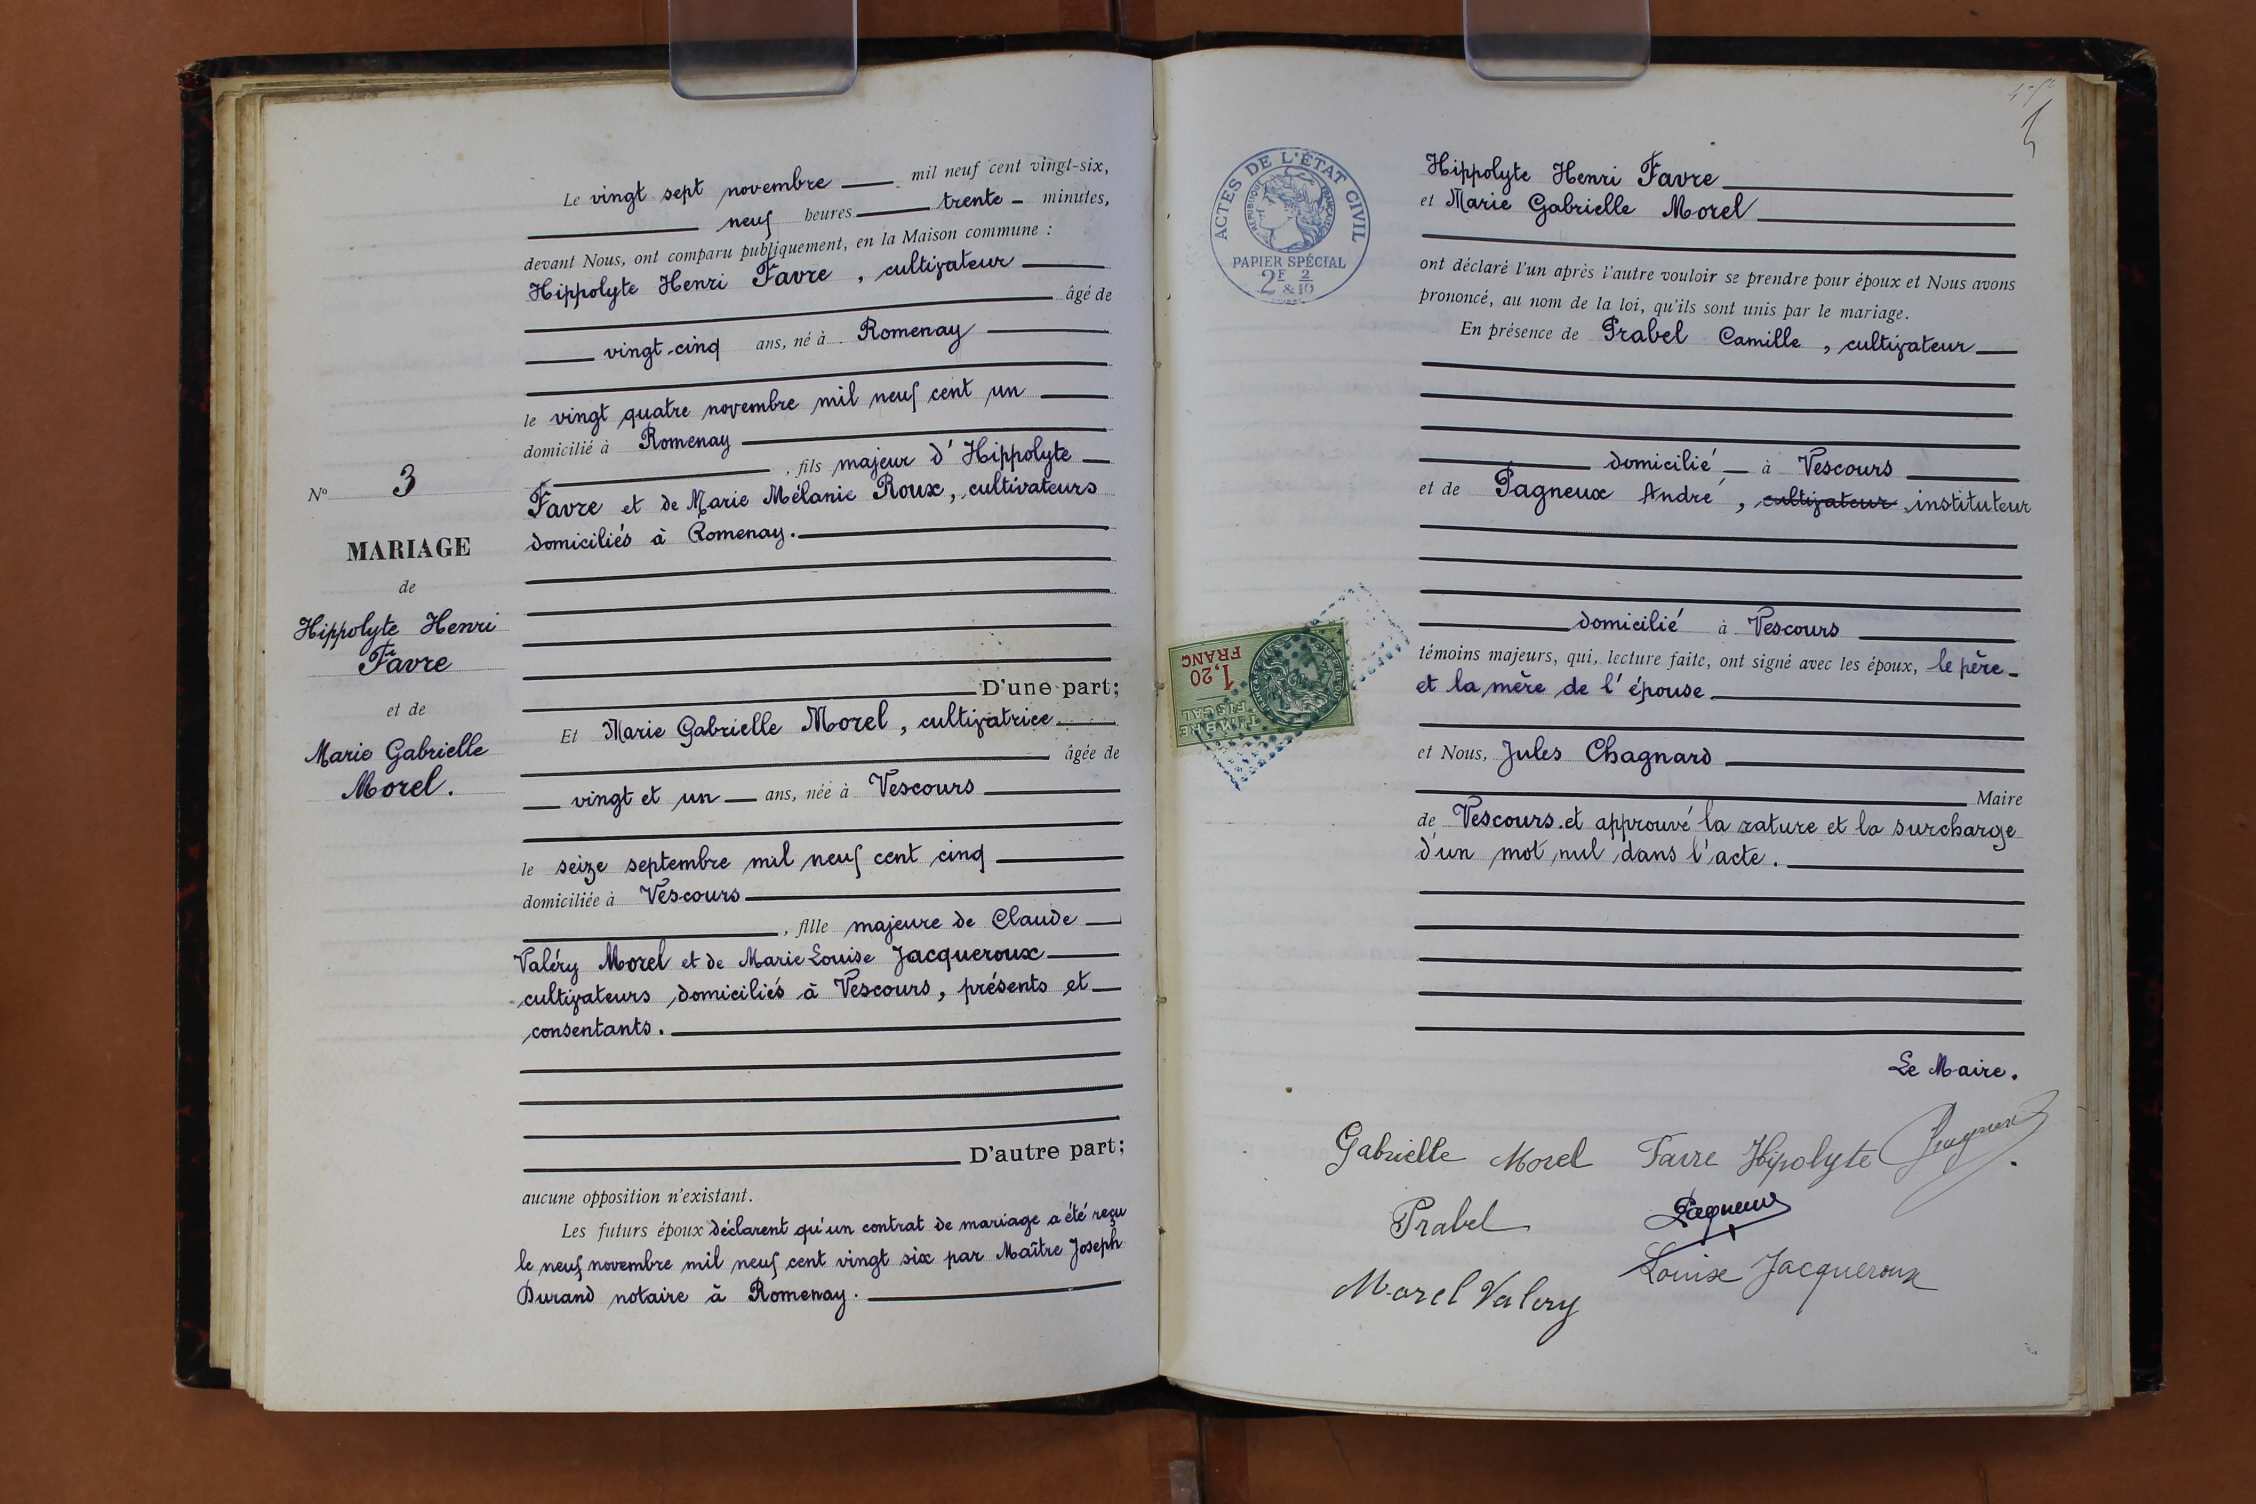 Le vingt sept novembre mil neuf cent vingt-six,
neuf heures trente minutes,
devant Nous, ont comparu publiquement, en la Maison commune :
Hippolyte Henri Favre, cultivateur
âgé de
vingt-cinq ans, né à Romenay
le vingt quatre novembre mil neuf cent un
domicilié à Romenay
, fils majeur d'Hippolyte
Favre et de Marie Mélanie Roux, cultivateurs
domiciliés à Romenay.
N° 3
MARIAGE
de
Hippolyte Henri
Favre
et de
Marie Gabrielle
Morel.
D'une part;
Et Marie Gabrielle Morel, cultivatrice
âgée de
vingt et un ans, née à Vescours
le seize septembre mil neuf cent cinq
domiciliée à Vescours
, fille majeure de Claude
Valéry Morel et de Marie Louise Jacqueroux
cultivateurs domiciliés à Vescours, présents et
consentants.
D'autre part;
aucune opposition n'existant.
Les futurs époux déclarent qu'un contrat de mariage a été reçu
le neuf novembre mil neuf cent vingt six par Maître Joseph
Durand notaire à Romenay.
ACTES DE L'ÉTAT CIVIL
RÉPUBLIQUE FRANÇAISE
PAPIER SPÉCIAL
2F & 2/10
1,20
FRANC
TIMBRE
FISCAL
Hippolyte Henri Favre
et Marie Gabrielle Morel
ont déclaré l'un après l'autre vouloir se prendre pour époux et Nous avons
prononcé, au nom de la loi, qu'ils sont unis par le mariage.
En présence de Prabel Camille, cultivateur
domicilié à Vescours
et de Pagneux André, cultivateur instituteur
domicilié à Vescours
témoins majeurs, qui, lecture faite, ont signé avec les époux, le père
et la mère de l'épouse
et Nous, Jules Chagnard
Maire
de Vescours. et approuvé la rature et la surcharge
d'un mot nul dans l'acte.
Le Maire.
Gabrielle Morel Favre Hipolyte
Prabel Pagneux
Louise Jacqueroux
Morel Valery